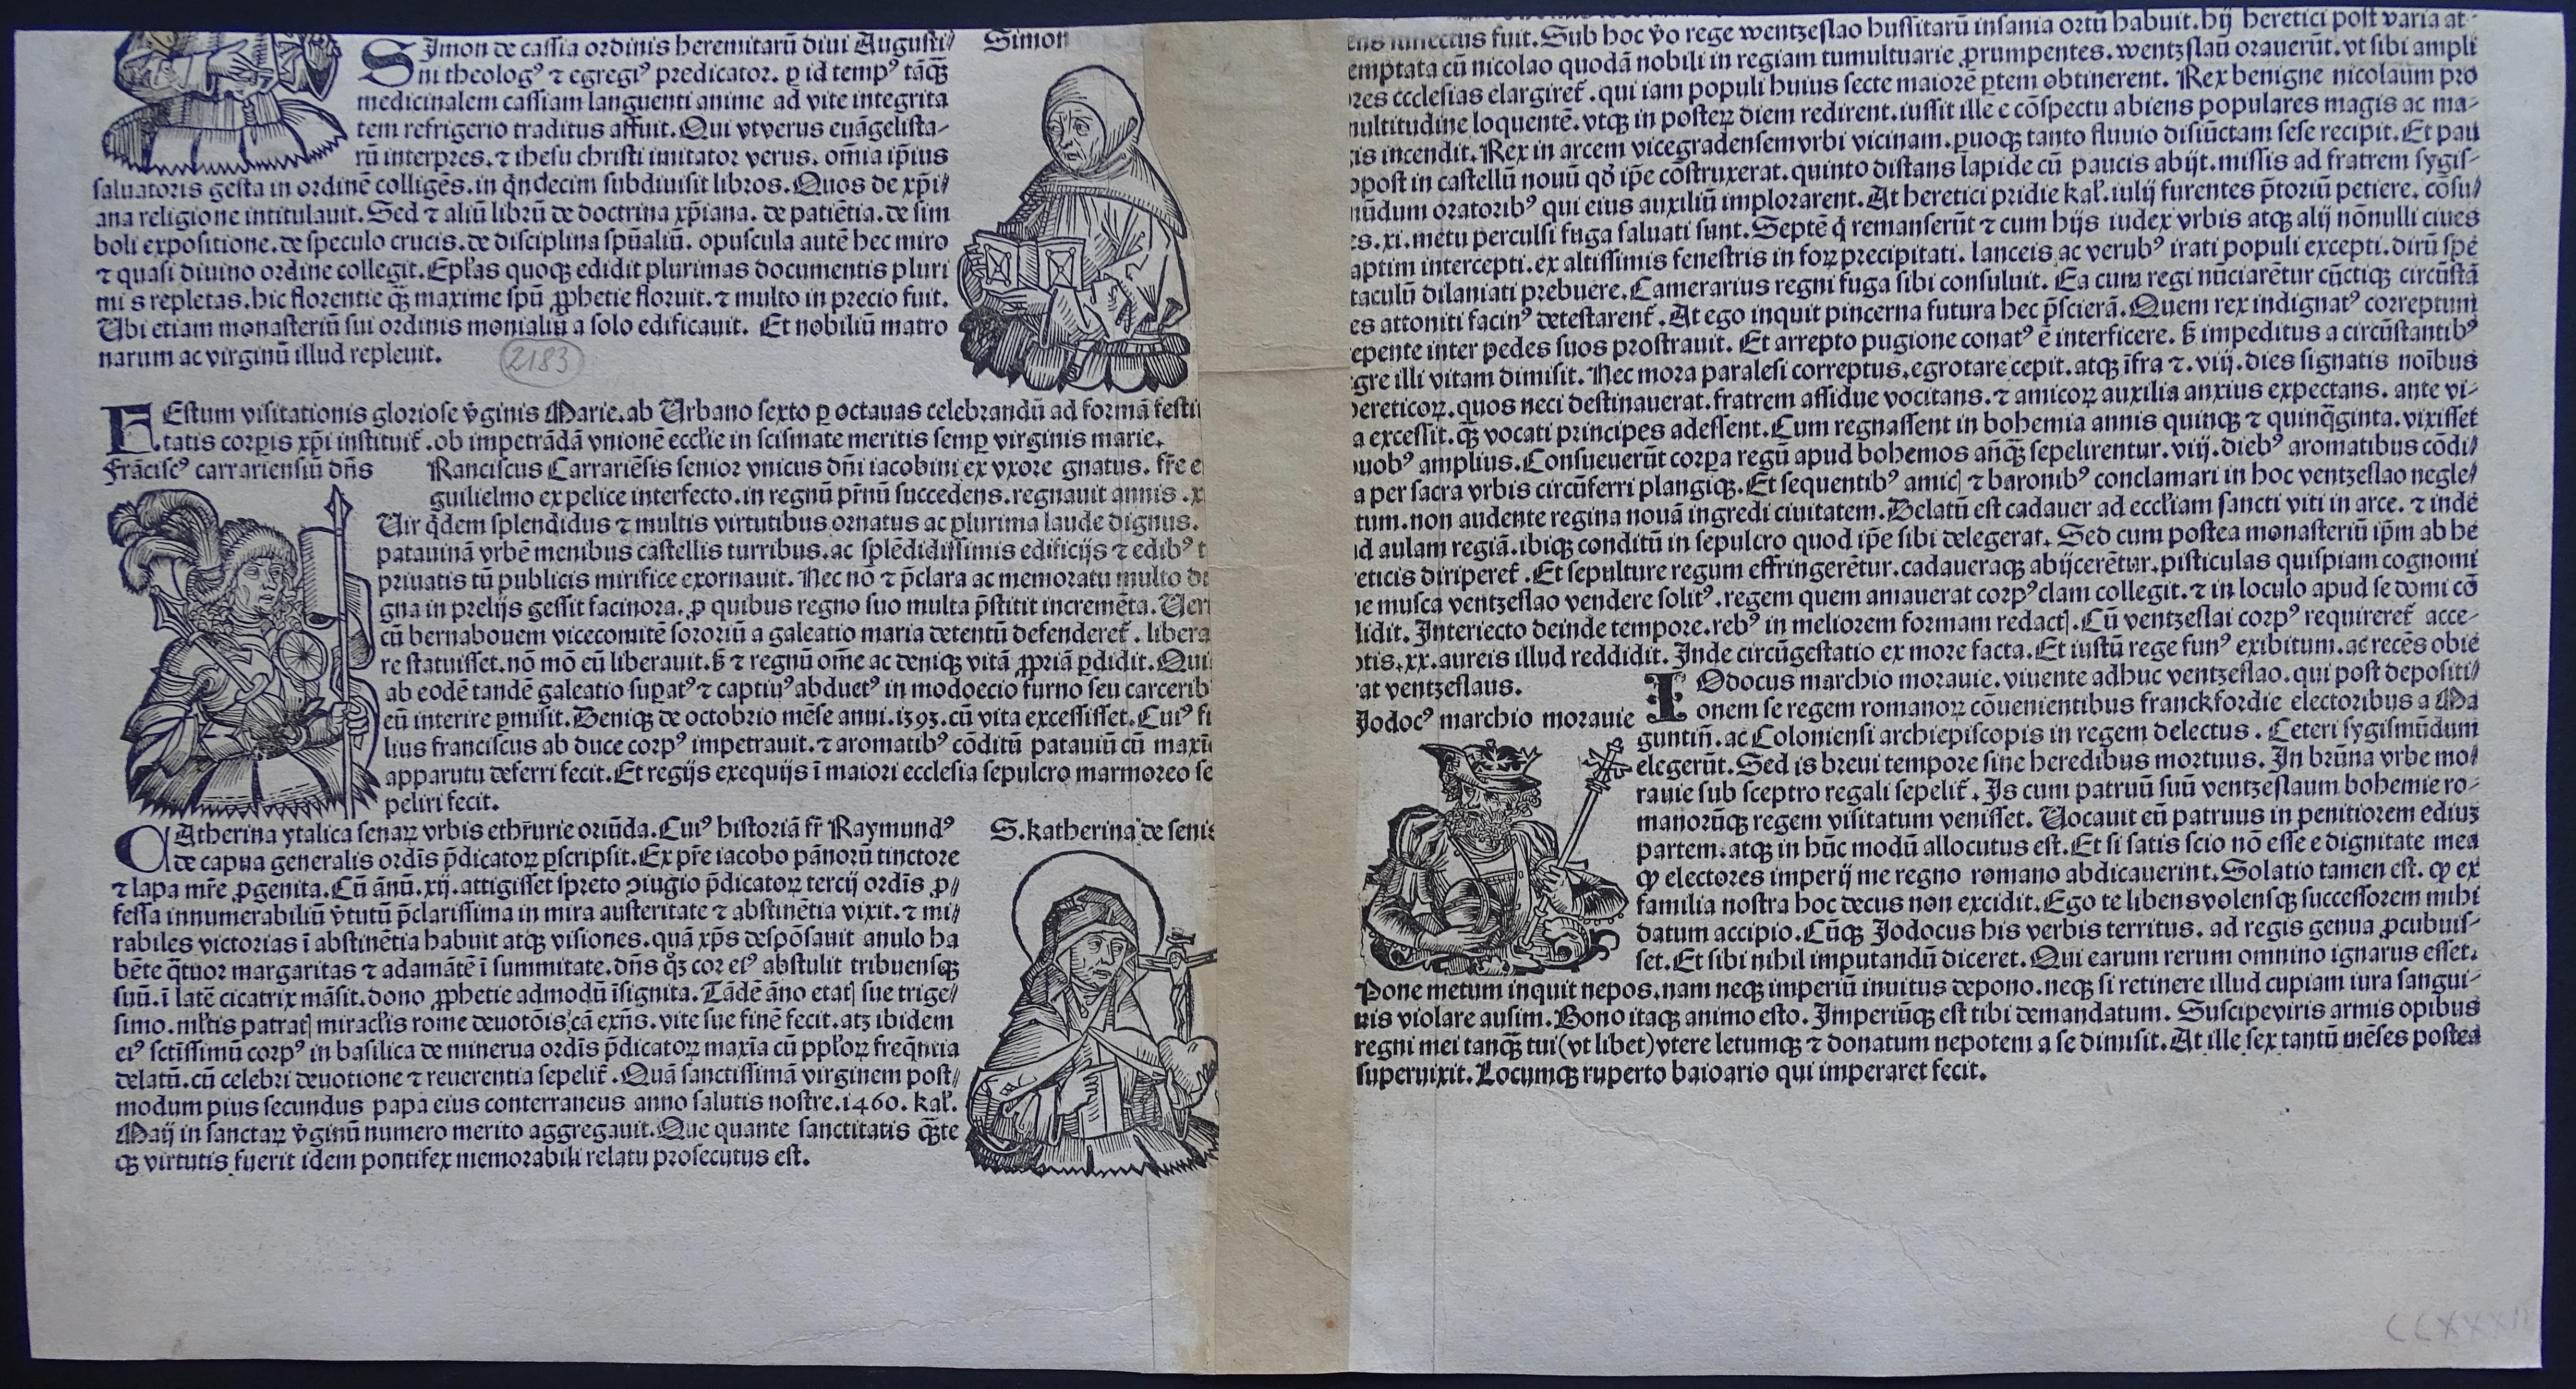 Simon de cassia ordinis heremitarū diui Augusti⸗
ni theologꝰ ⁊ egregiꝰ predicator. ꝑ id tempꝰ tāꝙ̄
medicinalem cassiam languenti anime ad vite integrita
tem refrigerio traditus affuit. Qui vt verus euāgelista⸗
rū interpres. ⁊ ihesu christi imitator verus. om̄ia ip̄ius
saluatoris gesta in ordinē colligēs. in q̄ndecim subdiuisit libros. Quos de xp̄i⸗
ana religione intitulauit. Sed ⁊ aliū librū de doctrina xp̄iana. de patiētia. de sim
boli expositione. de speculo crucis. de disciplina spūaliū. opuscula autē hec miro
⁊ quasi diuino ordine collegit. Epl̄as quoqꝫ edidit plurimas documentis pluri
mi s repletas. hic florentie ꝙ̄ maxime spū ꝓphetie floruit. ⁊ multo in precio fuit.
Ubi etiam monasteriū sui ordinis monialiū a solo edificauit. Et nobiliū matro
narum ac virginū illud repleuit.
2183
Simon
FEstum visitationis gloriose v̄ginis Marie. ab Urbano sexto ꝑ octauas celebrandū ad formā festi
tatis corpis xp̄i instituit̄. ob impetrādā vnionē eccl̄ie in scismate meritis semꝑ virginis marie.
Frāciscꝰ carrariensiū dn̄s
Ranciscus Carrariēsis senior vnicus dn̄i iacobini ex vxore gnatus. fr̄e e
guilielmo ex pelice interfecto. in regnū pr̄nū succedens. regnauit annis .x
Uir q̄dem splendidus ⁊ multis virtutibus ornatus ac plurima laude dignus.
patauinā vrbē menibus castellis turribus. ac splēdidissimis edificijs ⁊ edibꝰ t
priuatis tū publicis mirifice exornauit. Nec nō ⁊ p̄clara ac memoratu multo di
gna in prelijs gessit facinora. ꝓ quibus regno suo multa p̄stitit incremēta. Uer
cū bernabouem vicecomitē sororiū a galeatio maria detentū defenderet̄. libera
re statuisset. nō mō eū liberauit. ß ⁊ regnū om̄e ac deniqꝫ vitā ꝓpriā ꝑdidit. Qui
ab eodē tandē galeatio suꝑatꝰ ⁊ captiuꝰ abductꝰ in modoecio furno seu carcerib
eū interire ꝑmisit. Deniqꝫ de octobrio mēse anni. 1393. cū vita excessisset. Cuiꝰ fi
lius franciscus ab duce corpꝰ impetrauit. ⁊ aromatibꝰ cōditū patauiū cū maxi
apparutu deferri fecit. Et regijs exequijs ī maiori ecclesia sepulcro marmoreo se
peliri fecit.
CAtherina ytalica senaꝝ vrbis ethr̄urie oriūda. Cuiꝰ historiā fr̄ Raymundꝰ
de capua generalis ordīs p̄dicatoꝝ ꝑscripsit. Ex pr̄e iacobo pānorū tinctore
⁊ lapa mr̄e ꝓgenita. Cū ānū. xij. attigisset spreto ɔiugio p̄dicatoꝝ tercij ordīs ꝓ⸗
fessa innumerabiliū v̄tutū p̄clarissima in mira austeritate ⁊ abstinētia vixit. ⁊ mi⸗
rabiles victorias ī abstinētia habuit atqꝫ visiones. quā xp̄s despōsauit anulo ha
bēte q̄tuor margaritas ⁊ adamātē ī summitate. dn̄s qꝫ cor eiꝰ abstulit tribuensqꝫ
suū. ī latē cicatrix māsit. dono ꝓphetie admodū īsignita. Tādē āno etatꝭ sue trige⸗
simo. ml̄tis patratꝭ miracl̄is rome deuotōis cā exn̄s. vite sue finē fecit. atꝫ ibidem
eiꝰ sctīssimū corpꝰ in basilica de minerua ordīs p̄dicatoꝝ maxīa cū ppl̄oꝝ freq̄ntia
delatū. cū celebri deuotione ⁊ reuerentia sepelit̄. Quā sanctissimā virginem post⸗
modum pius secundus papa eius conterraneus anno salutis nostre. 1460. kal̄.
Maij in sanctaꝝ v̄ginū numero merito aggregauit. Que quante sanctitatis ꝙ̄te
qꝫ virtutis fuerit idem pontifex memorabili relatu prosecutus est.
S. katherina de senis
fuit. Sub hoc v̄o rege wentzeslao hussitarū insania ortū habuit. hij heretici post varia at⸗
emptata cū nicolao quodā nobili in regiam tumultuarie ꝓrumpentes. wentzslaū orauerūt. vt sibi ampli
ores ecclesias elargiret̄. qui iam populi huius secte maiorē ꝑtem obtinerent. Rex benigne nicolaum pro
multitudine loquentē. vtqꝫ in posteꝝ diem redirent. iussit ille e cōspectu abiens populares magis ac ma⸗
gis incendit. Rex in arcem vicegradensem vrbi vicinam. ꝑuoqꝫ tanto fluuio disiūctam sese recipit. Et pau
opost in castellū nouū qd̄ ip̄e cōstruxerat. quinto distans lapide cū paucis abijt. missis ad fratrem sygis⸗
mūdum oratoribꝰ qui eius auxiliū implorarent. At heretici pridie kal̄. iulij furentes p̄toriū petiere. cōsu⸗
es. xi. metu perculsi fuga saluati sunt. Septē q̄ remanserūt ⁊ cum hijs iudex vrbis atqꝫ alij nōnulli ciues
aptim intercepti. ex altissimis fenestris in foꝝ precipitati. lanceis ac verubꝰ irati populi excepti. dirū spe
taculū dilaniati prebuere. Camerarius regni fuga sibi consuluit. Ea cum regi nūciarētur cūctiqꝫ circūstā
es attoniti facinꝰ detestarent̄. At ego inquit pincerna futura hec p̄scierā. Quem rex indignatꝰ correptum
epente inter pedes suos prostrauit. Et arrepto pugione conatꝰ ē interficere. ß impeditus a circūstantibꝰ
gre illi vitam dimisit. Nec mora paralesi correptus. egrotare cepit. atqꝫ īfra ⁊. viij. dies signatis noībus
hereticoꝝ. quos neci destinauerat. fratrem assidue vocitans. ⁊ amicoꝝ auxilia anxius expectans. ante vi⸗
a excessit. ꝙ̄ vocati principes adessent. Cum regnassent in bohemia annis quinqꝫ ⁊ quinq̄ginta. vixisset
duobꝰ amplius. Consueuerūt corpa regū apud bohemos anꝙ̄ sepelirentur. viij. diebꝰ aromatibus cōdi⸗
a per sacra vrbis circūferri plangiqꝫ. Et sequentibꝰ amicꝭ ⁊ baronibꝰ conclamari in hoc ventzeslao negle⸗
tum. non audente regina nouā ingredi ciuitatem. Delatū est cadauer ad eccl̄iam sancti viti in arce. ⁊ inde
ad aulam regiā. ibiqꝫ conditū in sepulcro quod ip̄e sibi delegerat. Sed cum postea monasteriū ip̄m ab he
reticis diriperet̄. Et sepulture regum effringerētur. cadaueraqꝫ abijcerētur. pisticulas quispiam cognomi
ne musca ventzeslao vendere solitꝰ. regem quem amauerat corpꝰ clam collegit. ⁊ in loculo apud se domi cō
didit. Interiecto deinde tempore. rebꝰ in meliorem formam redactꝭ. Cū ventzeslai corpꝰ requireret̄ acce⸗
ptis. xx. aureis illud reddidit. Inde circūgestatio ex more facta. Et iustū rege funꝰ exibitum. ac recēs obie
rat ventzeslaus.
Jodocꝰ marchio morauie
IOdocus marchio morauie. viuente adhuc ventzeslao. qui post depositi⸗
onem se regem romanoꝝ cōuenientibus franckfordie electoribus a Ma
guntin̄. ac Coloniensi archiepiscopis in regem delectus. Ceteri sygismūdum
elegerūt. Sed is breui tempore sine heredibus mortuus. In brūna vrbe mo⸗
rauie sub sceptro regali sepelit̄. Is cum patruū suū ventzeslaum bohemie ro⸗
manorūqꝫ regem visitatum venisset. Uocauit eū patruus in penitiorem ediuꝫ
partem. atqꝫ in hūc modū allocutus est. Et si satis scio nō esse e dignitate mea
ꝙ electores imperij me regno romano abdicauerint. Solatio tamen est. ꝙ ex
familia nostra hoc decus non excidit. Ego te libens volensqꝫ successorem mihi
datum accipio. Cūqꝫ Jodocus his verbis territus. ad regis genua ꝓcubuis⸗
set. Et sibi nihil imputandū diceret. Qui earum rerum omnino ignarus esset.
Pone metum inquit nepos. nam neqꝫ imperiū inuitus depono. neqꝫ si retinere illud cupiam iura sangui⸗
nis violare ausim. Bono itaqꝫ animo esto. Imperiūqꝫ est tibi demandatum. Suscipe viris armis opibus
regni mei tanꝙ̄ tui (vt libet) vtere letumqꝫ ⁊ donatum nepotem a se dimisit. At ille sex tantū mēses postea
superuixit. Locumqꝫ ruperto baioario qui imperaret fecit.